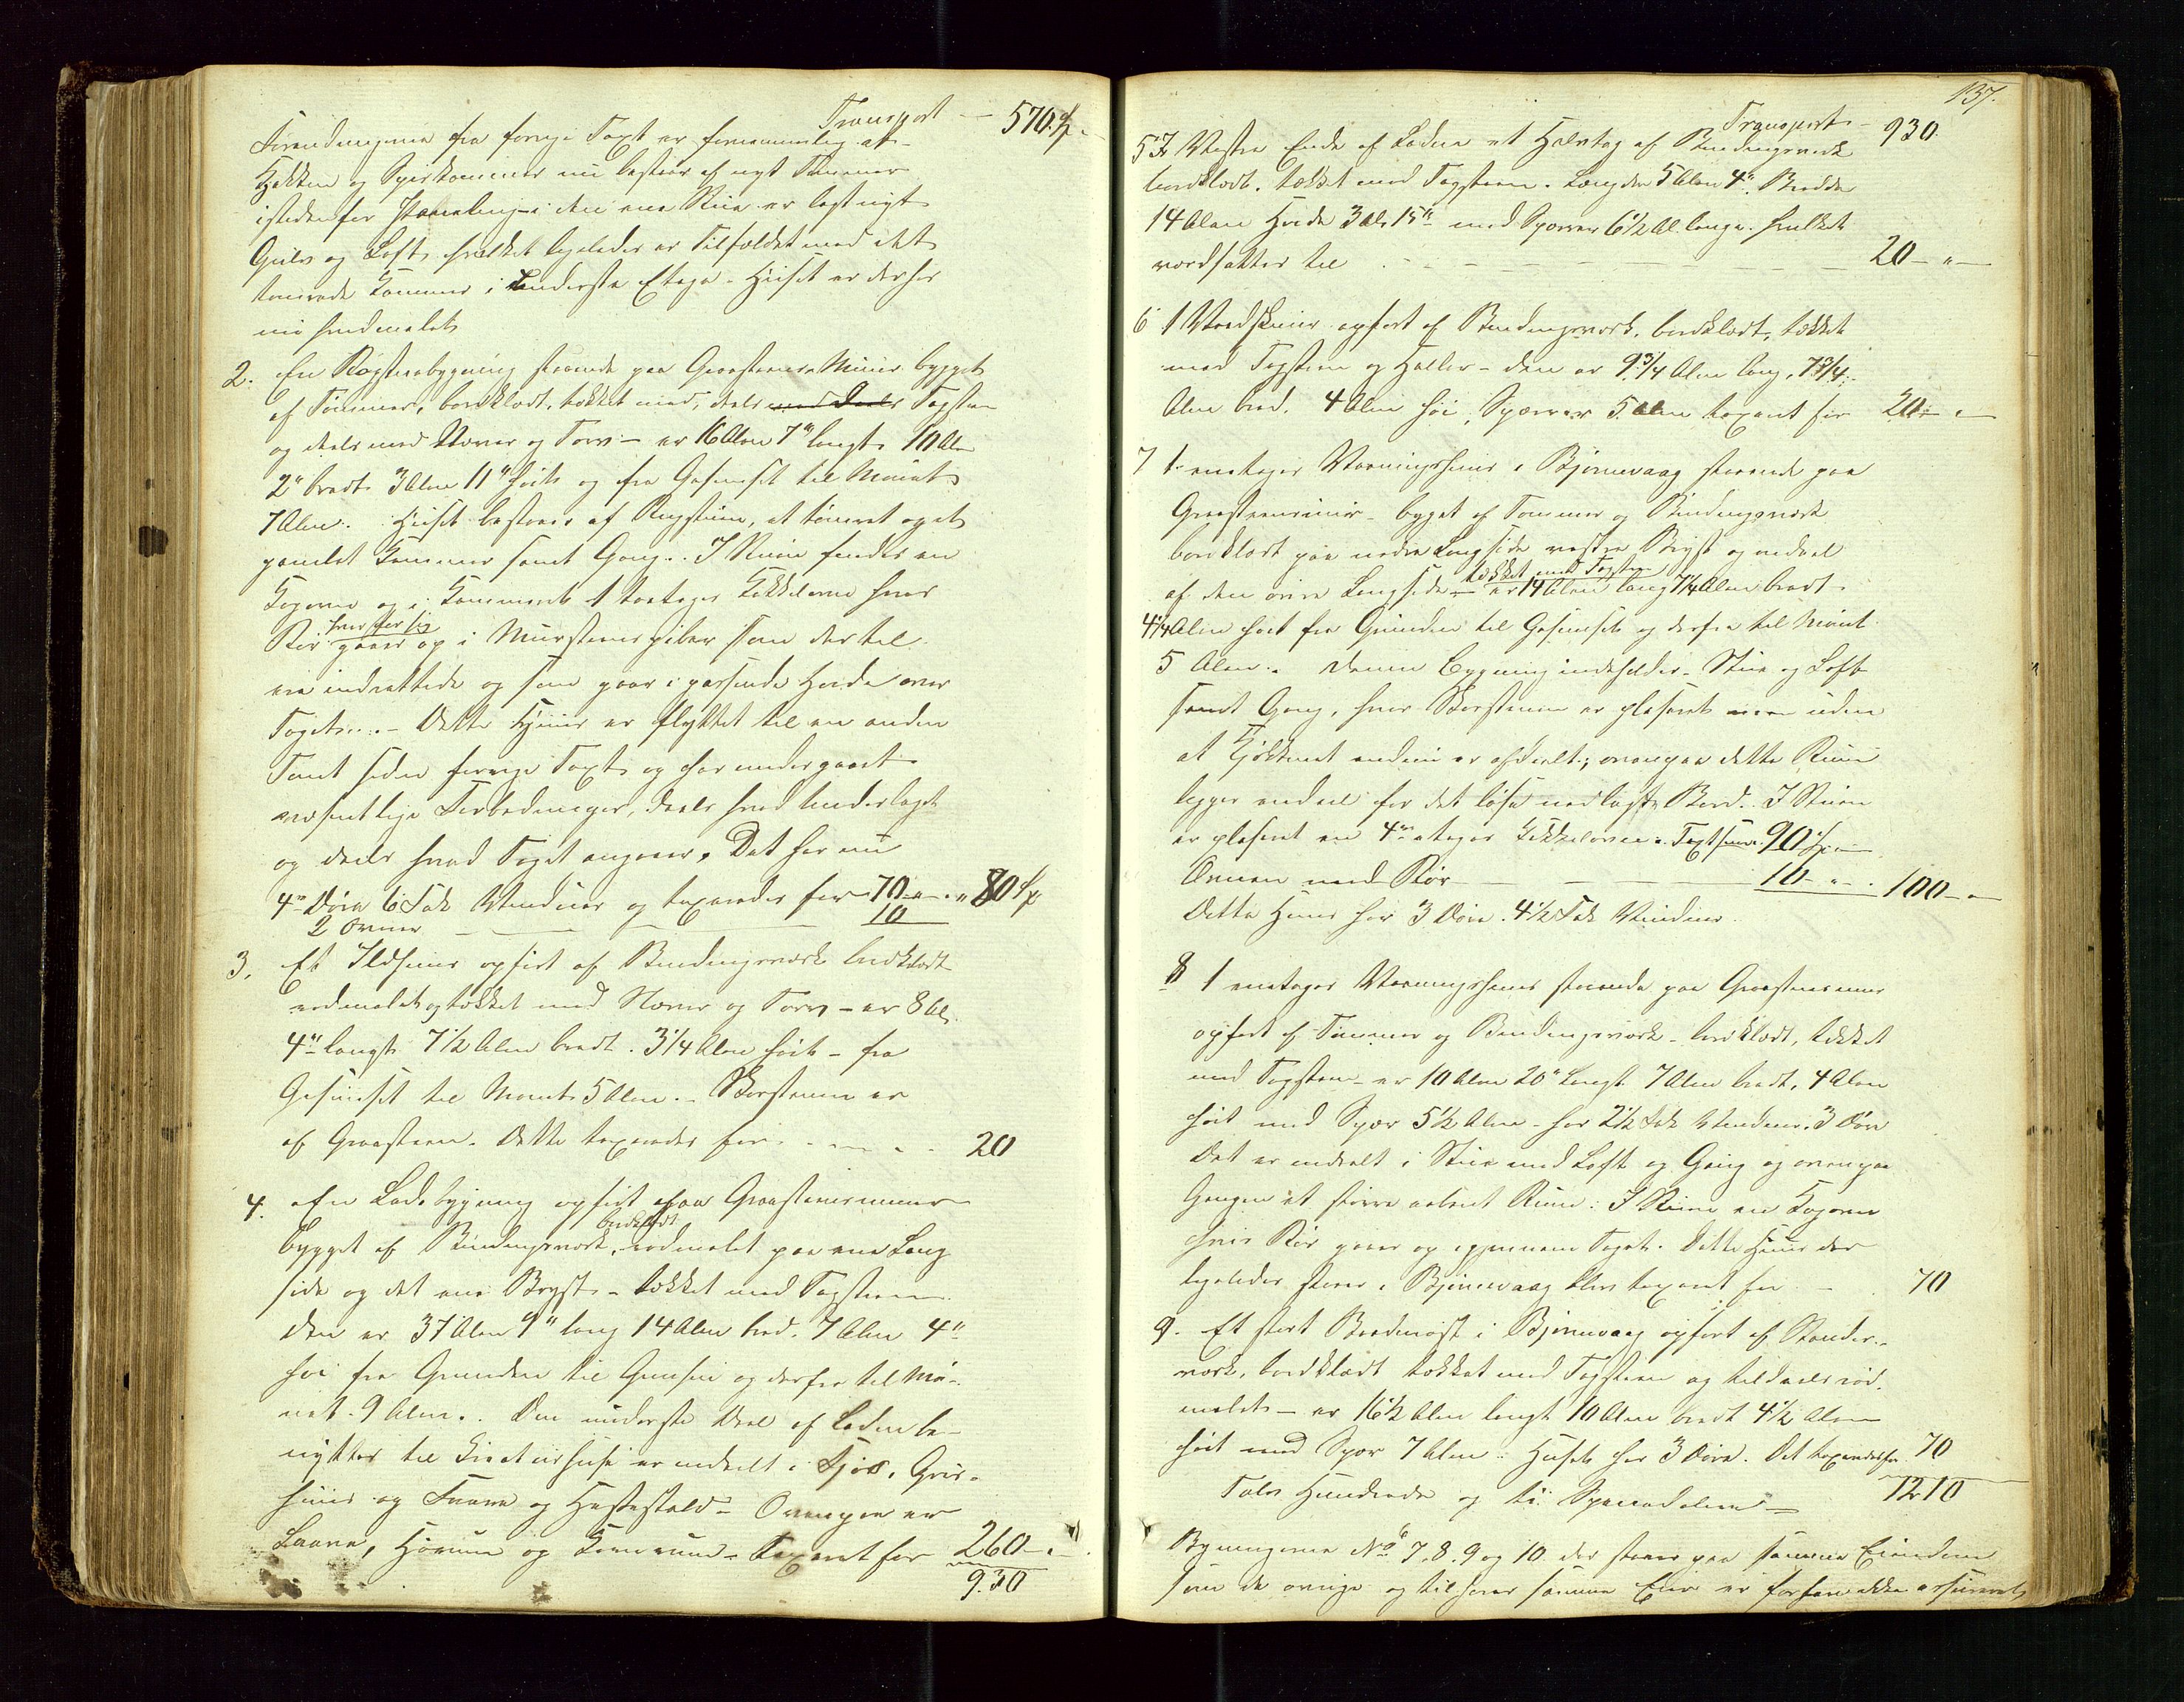 Transport - 570 Sp -
Forandringerne fra forrige Taxt er fornemmelig at
Kjøkken og Spiskammer nu bestaar af nyt Tømmer
istedenfor Paneling - i den ene Stue er lagt nyt
Gulv og Loft, hvilket ligeledes er Tilfældet med det
tømrede Kammer i underste Etage - Huset er derhos
nu hvidmalet
2. En Røgstuebygning staaende paa Graasteens Muur bygget
af Tømmer, bordklædt, tækket med, deels med deels Tagsten
og deels med Næver og Torv - er 16 Alen 7" langt 10 Alen
2" bredt 3 Alen 11" høit og fra Gesimset til Mønet
7 Alen. Huset bestaar af Røgstue, et tømret og et
panelet Kammer samt Gang. I Stuen findes en
Kogovn og i Kammeret 1 toetages Kakkelovn hvis
Rør hver for sig gaaer op i Murstenspiber som dertil
ere indrettede og som gaar i passende Høide over
Taget. - Dette Huus er flyttet til en anden
Tomt siden forrige Taxt og har undergaaet
væsentlige Forbedringer, deels hvad Underlaget
og deels hvad Taget angaaer. Det har nu
4re Døre 6 Fak Vinduer og taxeredes for 70 - " 80 Sp
2 Ovner - - - 10
3. Et Ildhuus opført af Bindingsverk bordklædt
rødmalet og tækket med Næver og Torv - er 8 Al.
4" langt 7 1/2 Alen bredt. 3 1/4 Alen høit - fra
Gesimset til Mønet 5 Alen. - Skorstenen er
af Graasteen. Dette taxeredes for - - - 20
4. En Ladebygning opført paa Graasteensmuur
bygget af Bindingsverk, bordklædt rødmalet paa ene Lang
side og det ene Bryst - tækket med Tagsteen.
Den er 37 Alen 9" lang 14 Alen bred. 7 Alen 4"
høi fra Grunden til Gimsen og derfra til Mø-
net 9 Alen. Den underste Deel af Laden be-
nyttes til Kreaturhuse er inddeelt i Fjøs, Grise-
huus og Faare og Hestestald - Ovenpaa er
Laave, Hørum og Kornrum - Taxeret for 260 - " -
930
137.
Transport - 930.
5 I Vestre Ende af Laden et Halvtag af Bindingsverk
bordklædt. tækket med Tagsteen. Længden 5 Alen 4". Bredde
14 Alen Høide 3 Al. 15" med Sperrer 6 1/2 Al. lange. hvilket
værdsættes til - - - - - 20 - " -
6 1 Vedskuur opført af Bindingsverk. bordklædt, tækket
med Tagsteen og Heller - den er 9 3/4 Alen lang, 7 3/4
Alen bred. 4 Alen høi, Sperrer 5 Alen taxeret for 20 - " -
7 1 enetages Vaaningshuus i Bjørnevaag staaende paa
Graasteensmuur - bygget af Tømmer og Bindingsverk
bordklædt paa nedre Langside vestre Bryst og endeel
af den øvre Langside - tækket med Tagsten er 14 Alen lang 7 1/4 Alen bredt
4 1/4 Alen høit fra Grunden til Gesimset og derfra til Mønet
5 Alen. Denne Bygning indeholder - Stue og Loft
samt Gang, hvor Skorstenen er plaseret men uden
at Kjøkkenet endnu er afdeelt; ovenpaa dette Rum
ligger endeel for det løse nedlagte Bord. I Stuen
er plaseret en 4re etages Kakkelovn. Taxtsum 90 Sp -
Ovnen med Rør - - - 10 - " - 100 - " -
Dette Huus har 3 Døre. 4 1/2 Fak Vinduer
8 1 enetages Vaaningshuus staaende paa Graasteensmuur
opført af Tømmer og Bindingsverk - bordklædt, tækket
med Tagsteen - er 10 Alen 20" langt 7 Alen bredt, 4 Alen
høit med Sper 5 1/2 Alen - har 2 1/2 Fak Vinduer. 3 Døre
Det er inddeelt i Stue med Loft og Gang og ovenpaa
Gangen et større aabent Rum: I Stuen en Kogovn
hvis Rør gaaer op igjennem Taget. Dette Huus der
ligeledes staar i Bjørnevaag blev taxeret for - 70
9. Et stort Baadnøst i Bjørnevaag opført af Stander-
verk, bordklædt tækket med Tagsteen og tildeels rød-
malet - er 16 1/2 Alen langt 10 Alen bredt 4 1/2 Alen
høit med Sper 7 Alen. Huset har 3 Døre. Det taxeredes for 70
Tolv Hundrede og ti Speciedaler - 1210
Bygningerne No 6 7. 8. 9 og 10. der staar paa samme Eiendom
som de øvrige og tilhører samme Eier er forhen ikke assureret